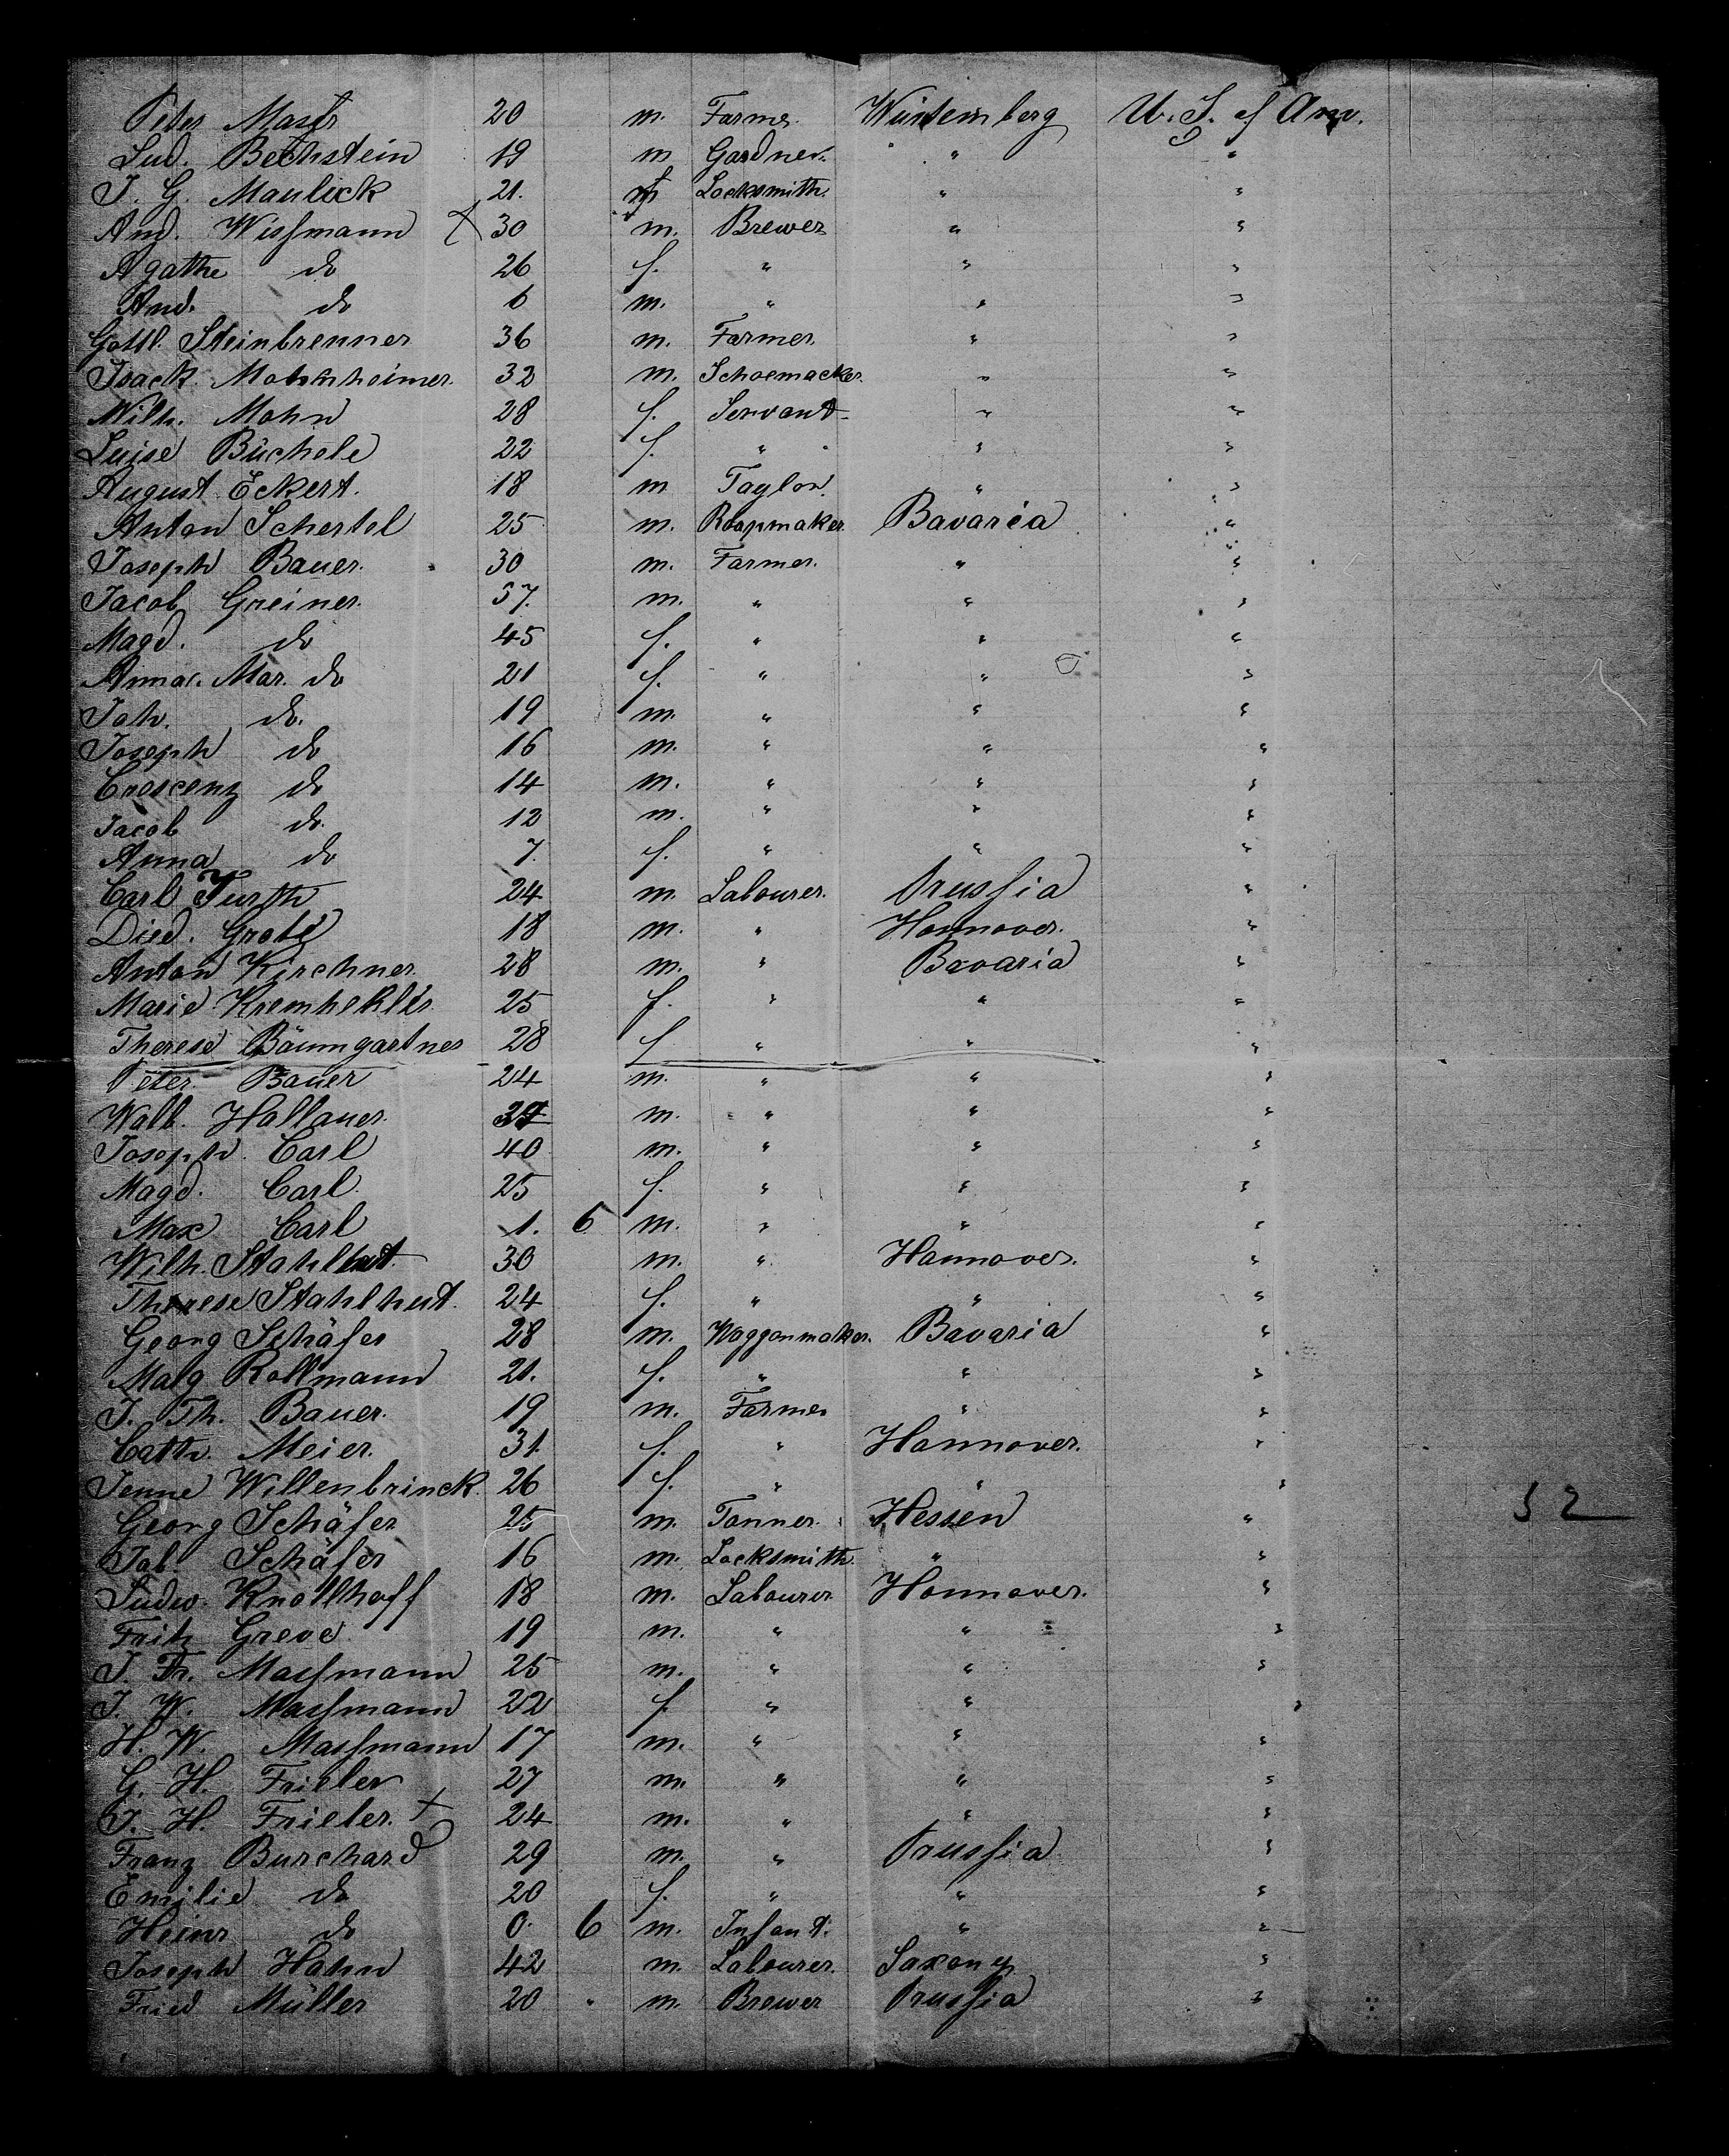 Peter Mast 20 m. Farmer. Würtemberg U. S. of Am.
Lud. Bechstein 19 m Gardner. " "
J. G. Maulick 21. m Locksmith. " "
And. Wissmann X 30 m. Brewer " "
Agathe do 26 f. " " "
And. do 6 m. " " "
Gottl. Steinbrenner 36 m. Farmer. " "
Isack Mohnheimer. 32 m. Schoemacker. " "
Wilh. Mohn 28 f. Servant " "
Luise Büchele 22 f. " " "
August Eckert. 18 m Taylor. " "
Anton Schertel 25 m. Roapmaker. Bavaria "
Joseph Bauer. 30 m. Farmer. " "
Jacob Greiner. 57. m. " " "
Magd. do 45 f. " " "
Anna. Mar. do 21 f. " " "
Joh. do. 19 m. " " "
Joseph do 16 m. " " "
Crescenz do 14 m. " " "
Jacob do. 12 m. " " "
Anna do 7. f. " " "
Carl Furth 24 m. Labourer. Prussia "
Died. Grote 18 m. " Hannover. "
Anton Kirchner 28 m. " Bavaria "
Marie 25 f. " " "
Therese Bäumgartner 28 f " " "
Peter Bauer 24 m. " " "
Walb. Hallauer. m. " " "
Joseph Carl 40 m. " " "
Magd. Carl 25 f. " " "
Max Carl 1. 6 m. " " "
Wilh. Stahlhut. 30 m. " Hannover. "
Therese Stahlhut. 24 f. " " "
Georg Schäfer 28 m. Waggonmaker. Bavaria "
Marg Rollmann 21. f. " " "
J. Th. Bauer. 19 m. Farmer " "
Cath. Meier. 31. f. " Hannover. "
Jenne Willenbrinck. 26 f. " " "
Georg Schäfer 25 m. Tanner. Hessen "
Jab. Schäfer 16 m. Locksmith. " "
Ludw. Knollhoff 18 m. Labourer Hannover. "
Fritz Greve 19 m. " " "
J. Fr. Massmann 25 m. " " "
J. W. Massmann 22 f. " " "
H. W. Massmann 17 m. " " "
G. H. Frieler 27 m. " " "
J. H. Frieler. X 24 m. " " "
Franz Burchard 29 m. " Prussia "
Emilie do 20 f. " " "
Heinr do 0. 6 m. Infant. " "
Joseph Hahn 42 m. Labourer. Saxony "
Fried Müller 20 " m. Brewer Prussia "
52